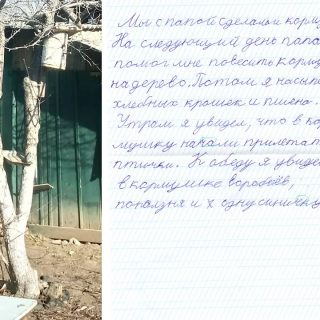 Мы с папой сделали корм
На следующий день папа
помог мне повесить корму
на дерево. Потом я насыпа
хлебных крошек и пшена.
Утром я увидел, что в кор
мушку начали прилетат
птички. К обеду я увиде
в кормушке воробьёв,
поползня и х одну синичку